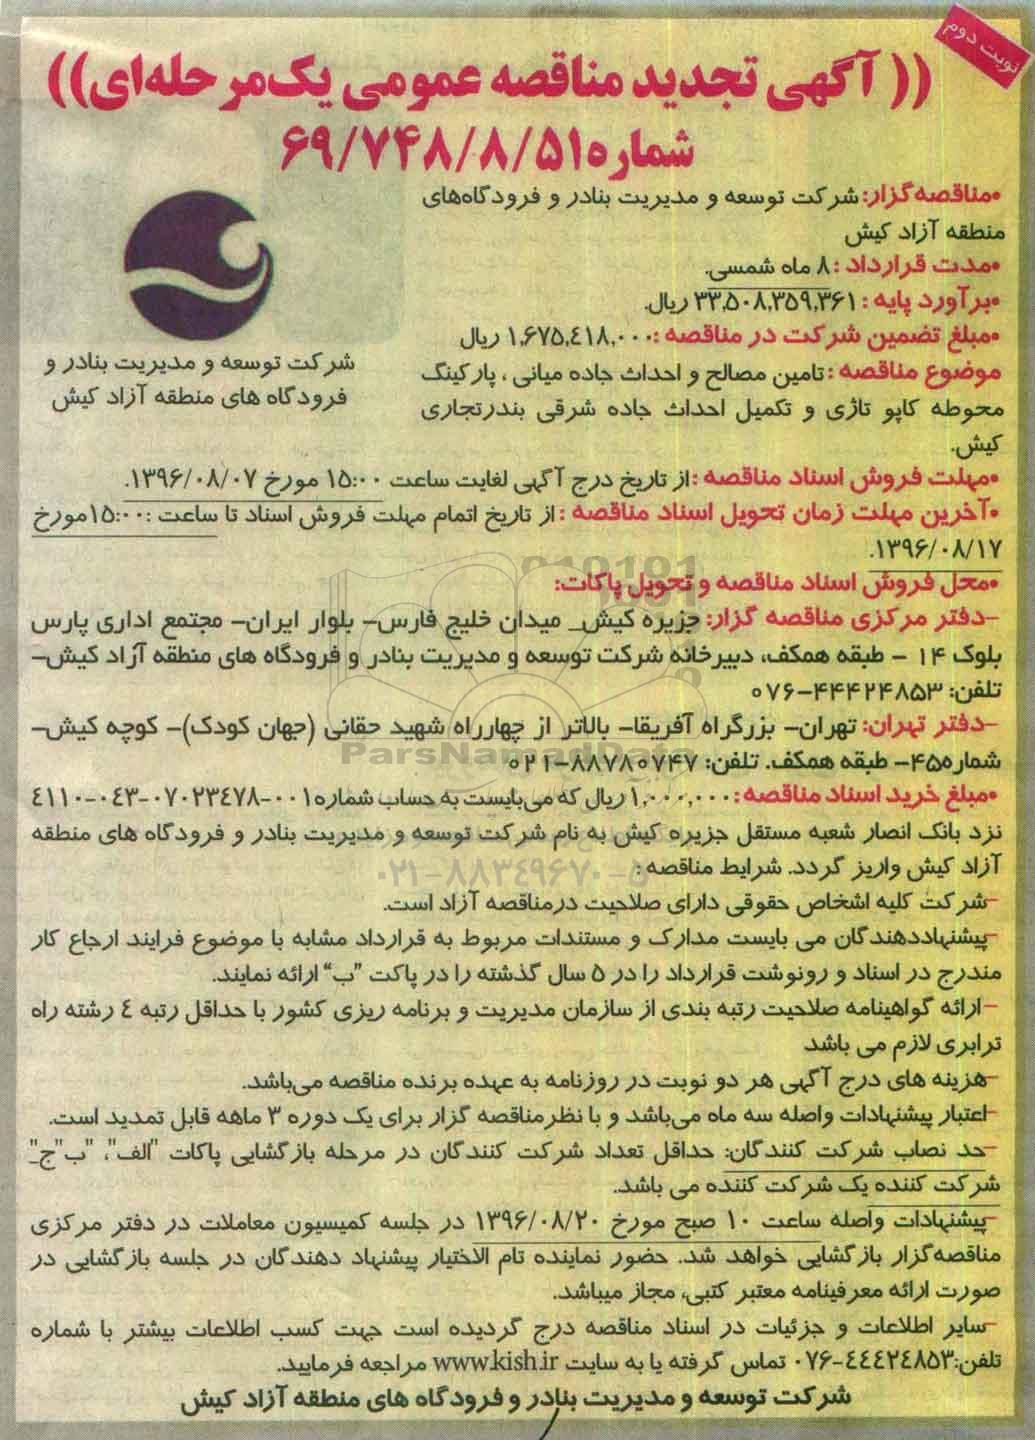 نوبت دوم
(( آگهی تجدید مناقصه عمومی یک‌مرحله‌ای))
شماره۶۹/۷۴۸/۸/۵۱
•مناقصه‌گزار: شرکت توسعه و مدیریت بنادر و فرودگاه‌های
منطقه آزاد کیش
•مدت قرارداد : ۸ ماه شمسی.
•برآورد پایه : ۳۳,۵۰۸,۳۵۹,۳۶۱ ریال.
•مبلغ تضمین شرکت در مناقصه :۱,۶۷۵,٤۱۸,۰۰۰ ریال
موضوع مناقصه : تامین مصالح و احداث جاده میانی ، پارکینگ
محوطه کاپو تاژی و تکمیل احداث جاده شرقی بندرتجاری
کیش.
شرکت توسعه و مدیریت بنادر و
فرودگاه های منطقه آزاد کیش
•مهلت فروش اسناد مناقصه :از تاریخ درج آگهی لغایت ساعت ۱۵:۰۰ مورخ ۱۳۹۶/۰۸/۰۷.
•آخرین مهلت زمان تحویل اسناد مناقصه :از تاریخ اتمام مهلت فروش اسناد تا ساعت :۱۵:۰۰مورخ
۱۳۹۶/۰۸/۱۷.
•محل فروش اسناد مناقصه و تحویل پاکات:
–دفتر مرکزی مناقصه گزار: جزیره کیش_ میدان خلیج فارس– بلوار ایران– مجتمع اداری پارس
بلوک ۱۴ – طبقه همکف، دبیرخانه شرکت توسعه و مدیریت بنادر و فرودگاه های منطقه آزاد کیش–
تلفن: ۰۷۶–۴۴۴۲۴۸۵۳
–دفتر تهران: تهران– بزرگراه آفریقا– بالاتر از چهارراه شهید حقانی (جهان کودک)– کوچه کیش–
شماره۴۵– طبقه همکف. تلفن: ۰۲۱–۸۸۷۸۰۷۴۷
ParsNamadData
•مبلغ خرید اسناد مناقصه :۱,۰۰۰,۰۰۰ ریال که می‌بایست به حساب شماره۰۰۱-۰۷۰۲۳٤۷۸-۰٤۳-٤۱۱۰
نزد بانک انصار شعبه مستقل جزیره کیش به نام شرکت توسعه و مدیریت بنادر و فرودگاه های منطقه
آزاد کیش واریز گردد. شرایط مناقصه :
۰۲۱-۸۸۳٤۹۶۷۰-۵
–شرکت کلیه اشخاص حقوقی دارای صلاحیت درمناقصه آزاد است.
–پیشنهاددهندگان می بایست مدارک و مستندات مربوط به قرارداد مشابه با موضوع فرایند ارجاع کار
مندرج در اسناد و رونوشت قرارداد را در ۵ سال گذشته را در پاکت ”ب“ ارائه نمایند.
–ارائه گواهینامه صلاحیت رتبه بندی از سازمان مدیریت و برنامه ریزی کشور با حداقل رتبه ٤ رشته راه
ترابری لازم می باشد
–هزینه های درج آگهی هر دو نوبت در روزنامه به عهده برنده مناقصه می‌باشد.
–اعتبار پیشنهادات واصله سه ماه می‌باشد و با نظرمناقصه گزار برای یک دوره ۳ ماهه قابل تمدید است.
–حد نصاب شرکت کنندگان: حداقل تعداد شرکت کنندگان در مرحله بازگشایی پاکات "الف"، "ب"ج_"
شرکت کننده یک شرکت کننده می باشد.
–پیشنهادات واصله ساعت ۱۰ صبح مورخ ۱۳۹۶/۰۸/۲۰ در جلسه کمیسیون معاملات در دفتر مرکزی
مناقصه‌گزار بازگشایی خواهد شد. حضور نماینده تام الاختیار پیشنهاد دهندگان در جلسه بازگشایی در
صورت ارائه معرفینامه معتبر کتبی، مجاز میباشد.
–سایر اطلاعات و جزئیات در اسناد مناقصه درج گردیده است جهت کسب اطلاعات بیشتر با شماره
تلفن:۰۷۶-٤٤٤۲٤۸۵۳ تماس گرفته یا به سایت www.kish.ir مراجعه فرمایید.
شرکت توسعه و مدیریت بنادر و فرودگاه های منطقه آزاد کیش